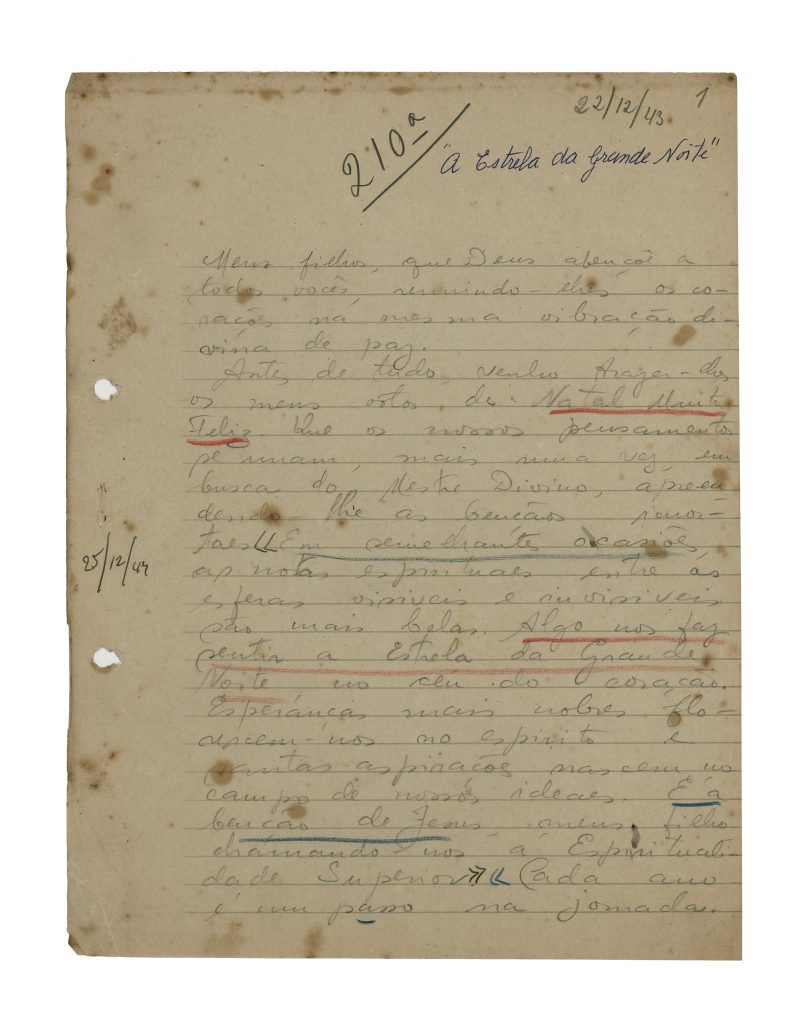 22/12/43 1
210ª
"A Estrela da Grande Noite"
Meus filhos, que Deus abençôe a
todos vocês, reunindo-lhes os co-
rações na mesma vibração di-
vina de paz.
Antes de tudo, venho trazer-lhes
os meus votos de Natal Muito
Feliz. Que os nossos pensamentos
se unam, mais uma vez, em
busca do Mestre Divino, apreen
dendo-lhe as bençãos imor-
taes «Em semelhantes ocasiões
as notas espirituaes entre as
25/12/44
esferas visiveis e invisiveis
são mais belas. Algo nos faz
sentir a Estrela da Grande
Noite no céu do coração.
Esperanças mais nobres flo-
rescem-nos no espirito e
santas aspirações nascem no
campo de nossos ideaes. É a
benção de Jesus, meus filhos
chamando-nos á Espirituali-
dade Superior» «Cada ano
é um passo na jornada.